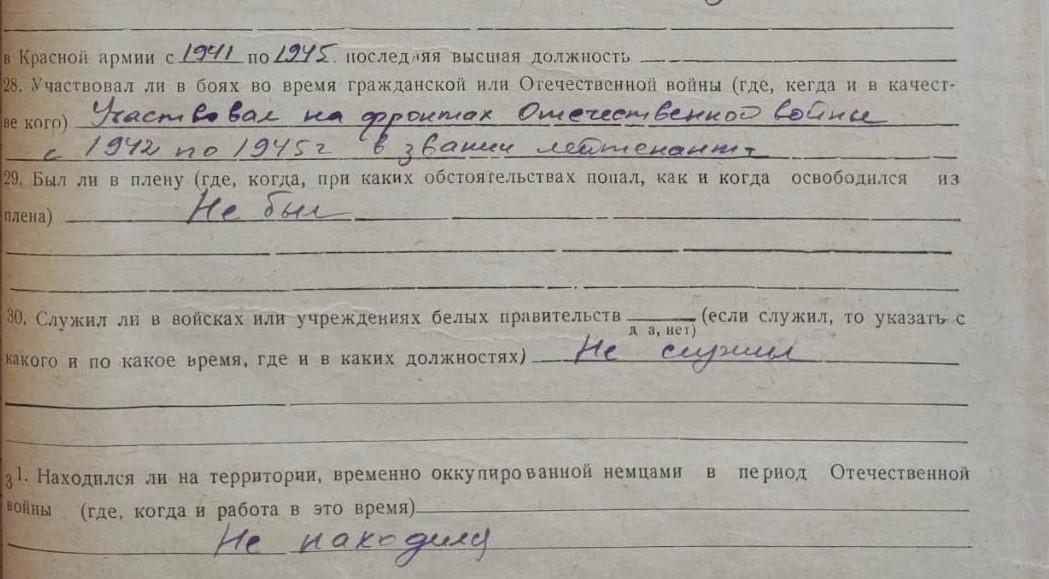 в Красной армии с 1941 по 1945. последняя высшая должность
28. Участвовал ли в боях во время гражданской или Отечественной войны (где, кегда и в качест-
ве кого) Участвовал на фронтах Отечественной войны
с 1942 по 1945г в звании лейтенант
29. Был ли в плену (где, когда, при каких обстоятельствах попал, как и когда освободился из
плена) Не был
30. Служил ли в войсках или учреждениях белых правительств (если служил, то указать с
д а, нет)
какого и по какое время, где и в каких должностях) Не служил
31. Находился ли на территории, временно оккупированной немцами в период Отечественной
войны (где, когда и работа в это время)
Не находился